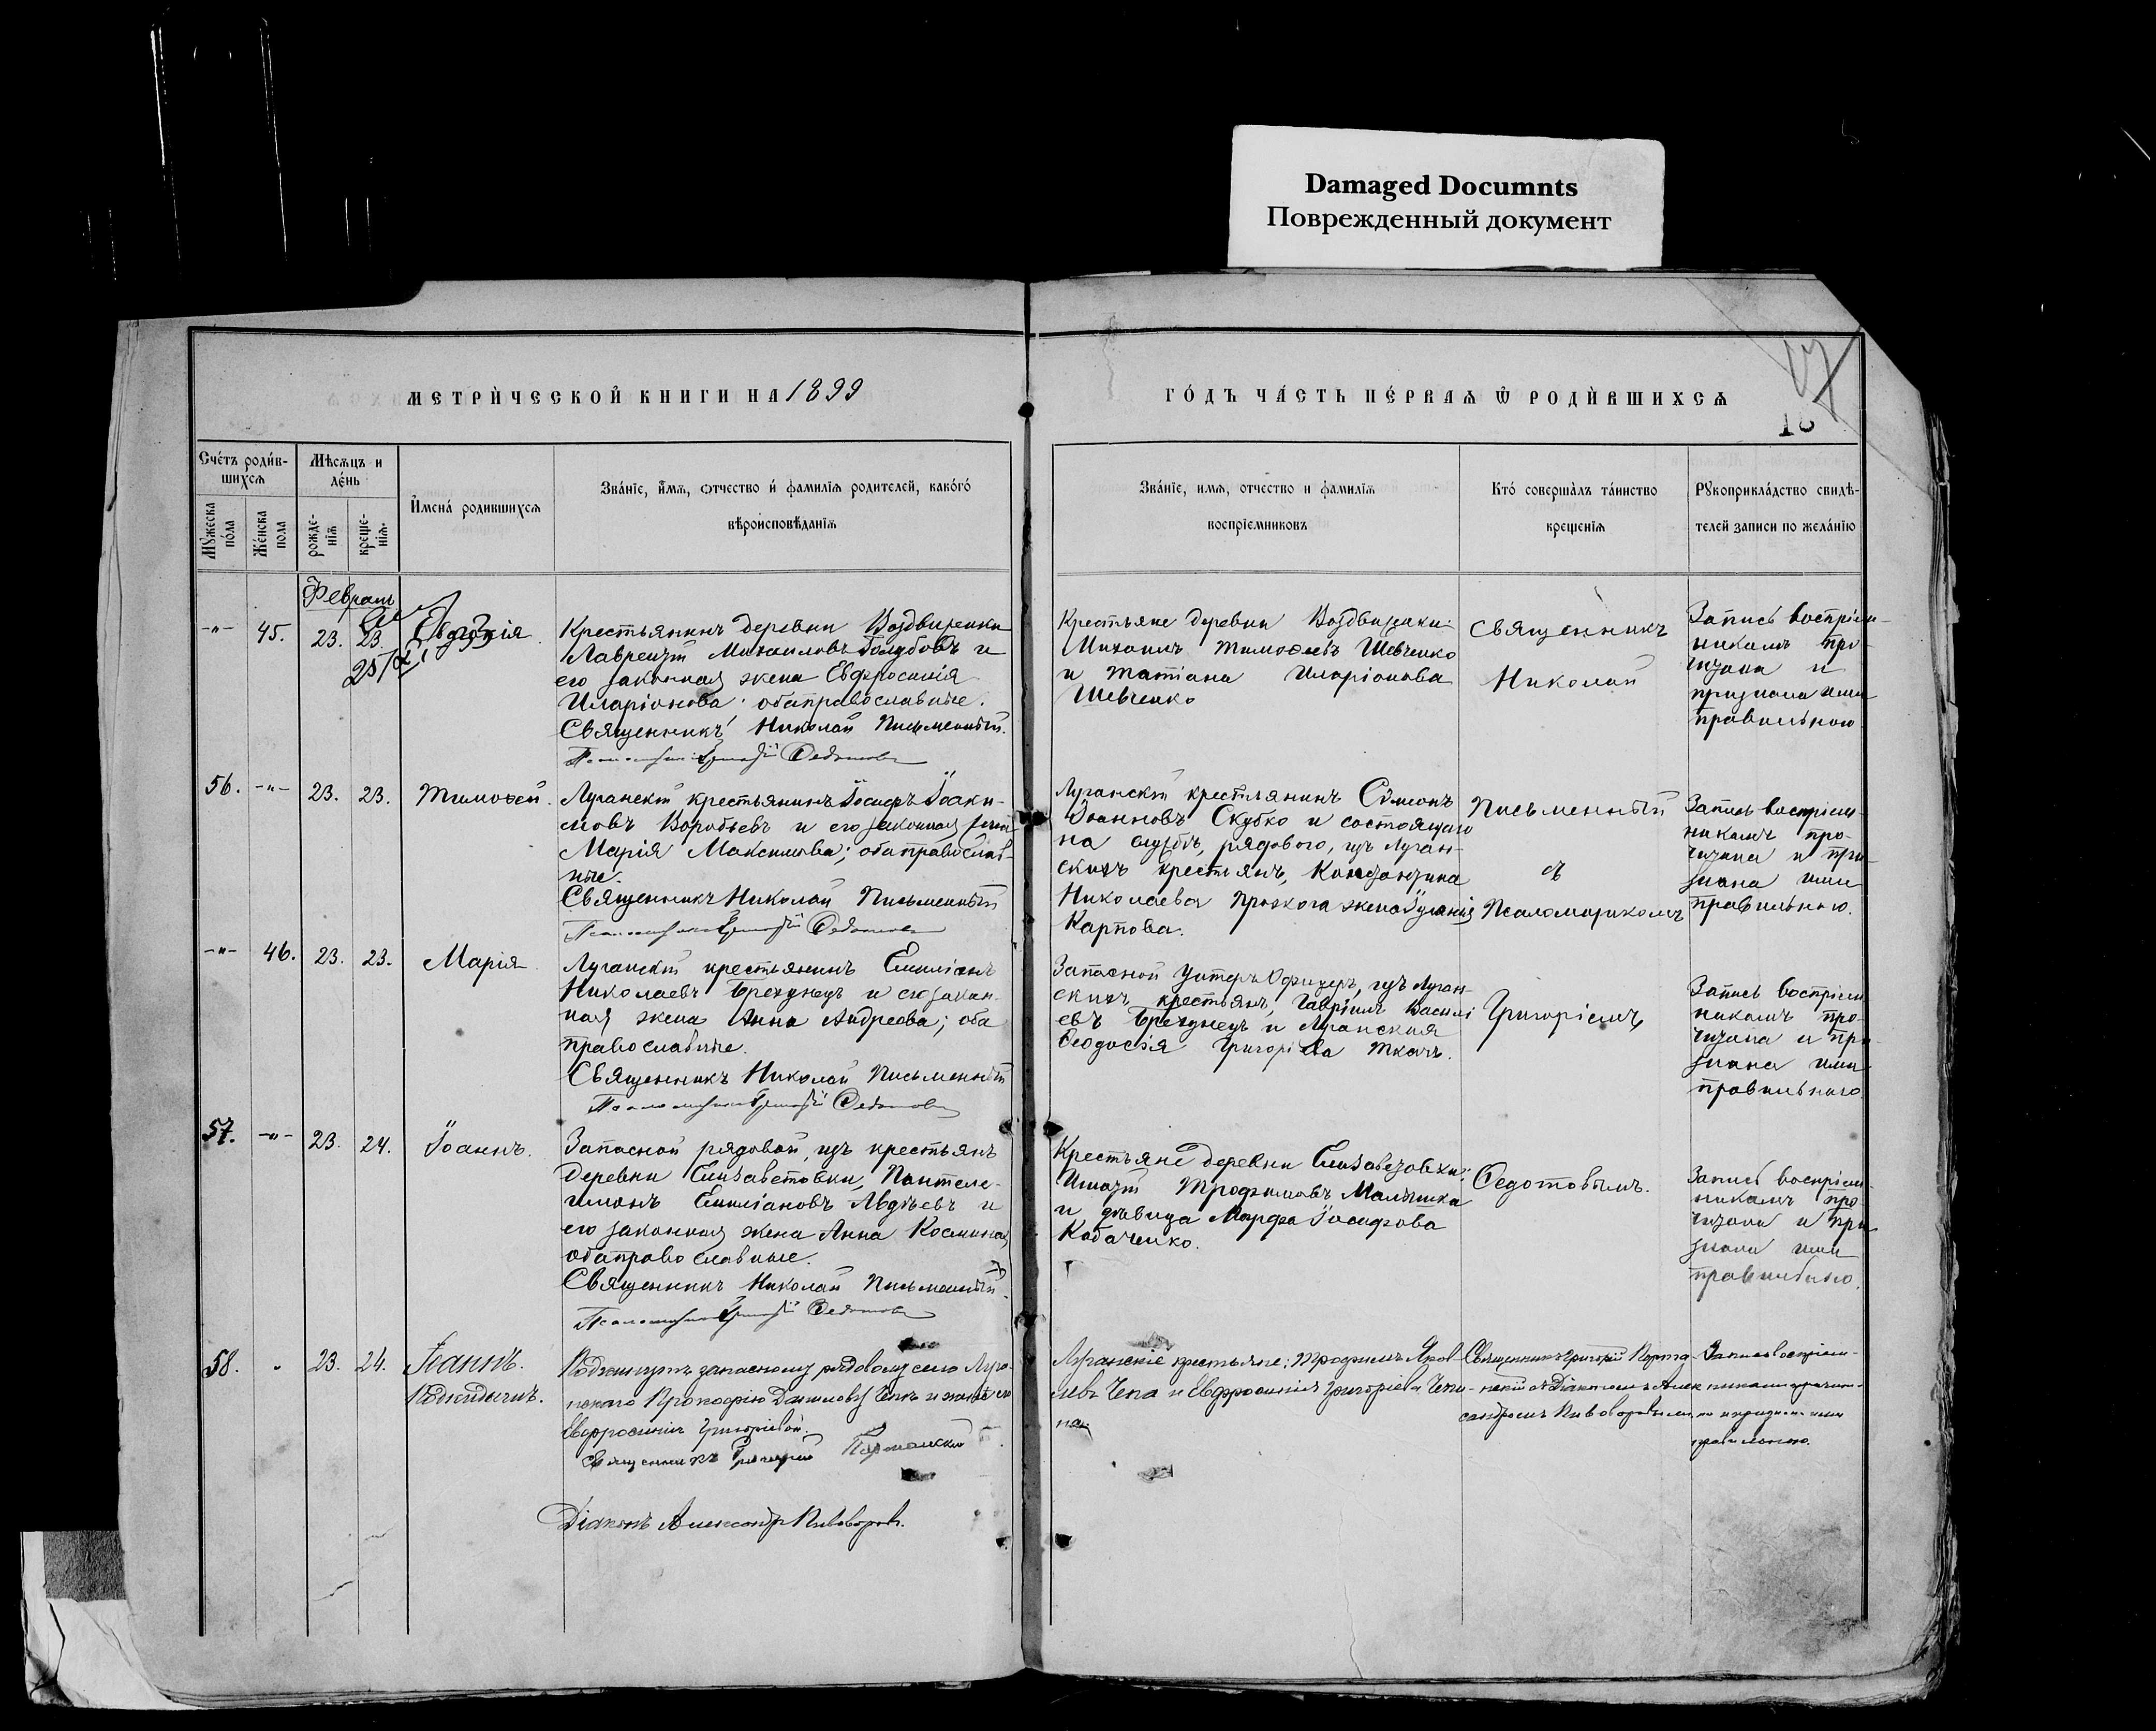 Damaged Documnts
Поврежденный документ
МЕТРИ́ЧЕСКОЙ КНИГИ НА 1899
ГО́ДЪ ЧА́СТЬ ПЕ́РВАѦ Ѿ РОДИ́ВШИХСѦ
Сче́тъ роди́в-
шихсѧ
Мѣсѧцъ и
де́нь
Мꙋ́жеска
по́ла
Же́нска
пола
рожде-
нїѧ
креще-
нїѧ.
И҆мена́ родившихсѧ
Зва́нїе, и҆́мѧ, ѻтчество и҆ фамилїѧ родителей, како́гѡ
вѣроисповѣданїѧ
Зва́нїе, имѧ, отчество и фамилїѧ
воспрїемниковъ
Кто́ соверша́лъ та́инство
крещенїѧ
Рꙋкоприкла́дство свидѣ-
телей записи по жела́нїю
Февраль
-"- 45. 23. 23.
Крестьянинъ деревни Воздвиженки
Лаврентій Михаиловъ Голубовъ и
его законная жена Евфросинія
Иларіонова; оба православные.
Священникъ Николай Письменный.
Крестьяне деревни Воздвиженки:
Михаилъ Тимоѳеевъ Шевченко
и Татіана Иларіонова
Шевченко
Священникъ
Николай
Запись воспріем-
никамъ про-
читана и
признана ими
правильною
56. -"- 23. 23. Тимоѳей.
Луганскій крестьянинъ Іосифъ Іоаки-
мовъ Воробьевъ и его законная жена
Марія Максимова; оба православ-
ные.
Священникъ Николай Письменный
Луганскій крестьянинъ Сѵмеонъ
Іоанновъ Скубко и состоящаго
на службѣ, рядового, изъ Луган-
скихъ крестьянъ,
Николаева жена
Карпова.
Письменный
съ
Псаломщикомъ
Запись воспріем-
никамъ про-
читана и при-
знана ими
правильною.
-"- 46. 23. 23. Марія
Луганскій крестьянинъ Емиліанъ
Николаевъ Брехунецъ и его закон-
ная жена Анна Андреева; оба
православные.
Священникъ Николай Письменный
Запасной Унтеръ Офицеръ, изъ Луган-
скихъ крестьянъ, Гавріилъ Василі
евъ Брехунецъ и Луганская
Ѳеодосія Григоріева Ткачъ.
Григоріемъ
Запись воспріем
никамъ про-
читана и при
знана ими
правильною
57. -"- 23. 24. Іоаннъ.
Запасной рядовой, изъ крестьянъ
деревни Елизаветовки, Пантеле-
имонъ Емиліановъ Авдѣевъ и
его законная жена Анна Космина;
оба православные.
Священникъ Николай Письменный
Крестьяне деревни Елизаветовки:
Игнатій Трофимовъ Малышка
и дѣвица Марфа Іосифова
Кабаченко.
Ѳедотовымъ.
Запись воспріем-
никамъ про-
читана и при
знана ими
правильною.
58. " 23. 24. Іоаннъ.
Подкидышъ.
Подкинутъ запасному рядовому села Луга-
нскаго Прокофію Данилову Чепѣ и женѣ его
Евфросиніи Григоріевой.
Священникъ Григорій
Діаконъ Александръ Пивоваровъ.
Луганскіе крестьяне: Трофимъ Яков-
левъ Чепа и Евфросинія Григоріева Чепи-
на
Священникъ Григорій
съ Діакономъ Алек
сандромъ Пивоваровымъ
Запись воспріем-
никамъ прочита-
на и признана ими
правильною.